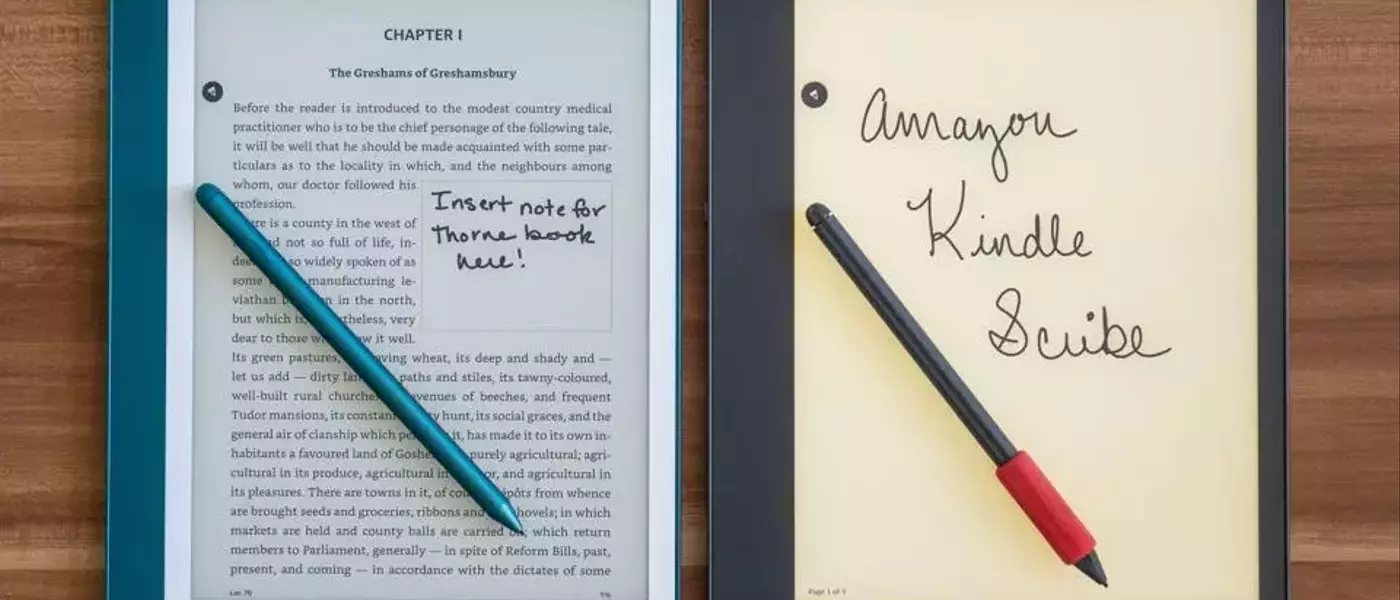 CHAPTER I
The Greshams of Greshamsbury
Before the reader is introduced to the modest country medical
practitioner who is to be the chief personage of the following tale,
it will be well that he should be made acquainted with some par-
ticulars as to the locality in which, and the neighbours among
whom, our doctor followed his
profession.
is a county in the west of
not so full of life, in-
so widely spoken of as
some manufacturing le-
viathan in the north,
but which very
dear to those it well.
Insert note for
Thorne book
here!
Its green pastures, its deep and shady and —
let us add — dirty paths and stiles, its tawny-coloured,
well-built rural of beeches, and frequent
Tudor mansions, its hunt, its social graces, and the
general air of clanship which it, has made it to its own in-
habitants a favoured land of purely agricultural; agri-
cultural in its produce, agricultural in and agricultural in
its pleasures. There are towns in it, of from whence
are brought seeds and groceries, ribbons and in which
markets are held and county balls are carried which return
members to Parliament, generally — in spite of Reform Bills, past,
present, and coming — in accordance with the dictates of some
Loc 70
Amazon
Kindle
Scribe
Page 1 of 1